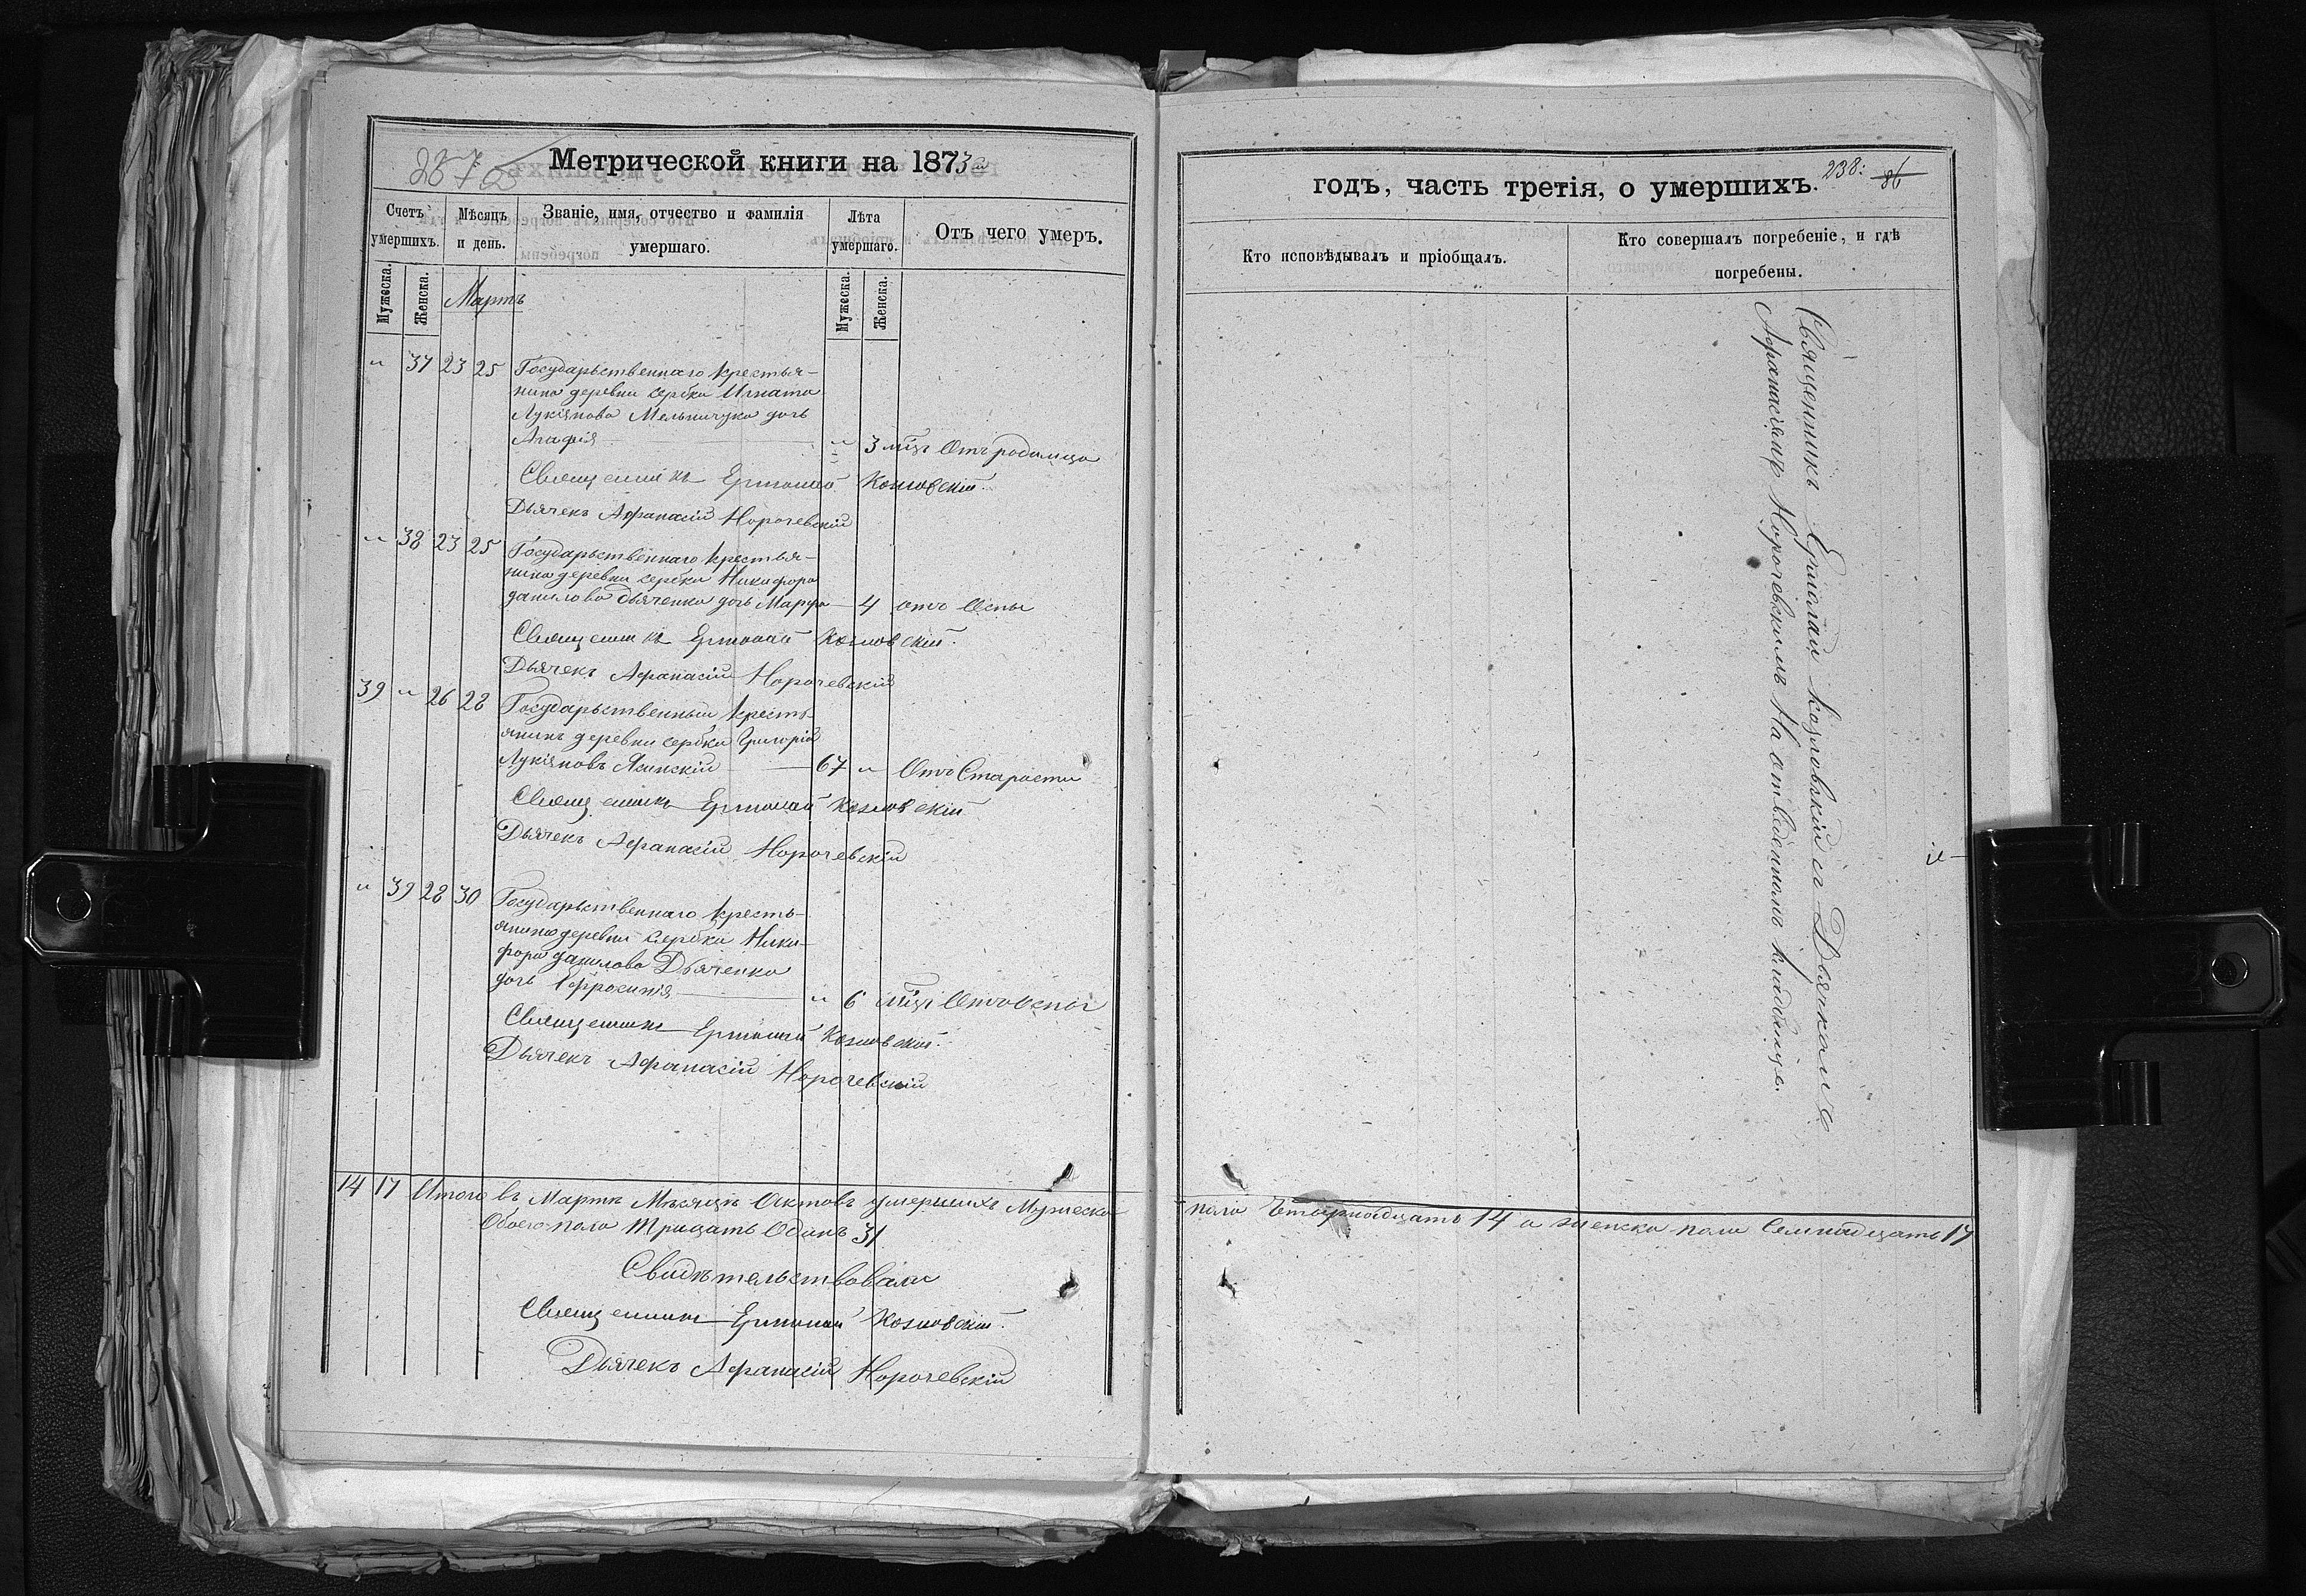 237
Метрической книги на 1873й
Счетъ умершихъ.
Мѣсяцъ и день.
Званіе, имя, отчество и фамилія умершаго.
Лѣта умершаго.
Отъ чего умеръ.
Мужеска.
Женска.
Мартъ
Мужеска.
Женска.
„ 37 23 25 Государьственнаго крестья-
нина деревни Сербки Игната
Лукіянова Мельничука дочь
Агафія „ 3 мѣц Отъ родимца
Священникъ Ермолай Козловскій.
Дьячекъ Афанасій Норочевскій
„ 38 23 25 Государьственнаго крестья-
нина деревни Сербки Никифора
данилова дьяченка дочь Марфа 4 отъ Оспы
Священникъ Ермолай Козловскій.
Дьячекъ Афанасій Норочевскій
39 „ 26 28 Государьственный кресть-
янинъ деревни Сербки Григорій
Лукіяновъ Ясинскій 67 „ Отъ Старости
Священникъ Ермолай Козловскій
Дьячекъ Афанасій Норочевскій
„ 39 28 30 Государьственнаго кресть-
янина деревни Сербки Ники-
фора данилова Дьяченка
дочь Ефросинія „ 6 мѣц Отъ Оспы
Священникъ Ермолай Козловскій.
Дьячекъ Афанасій Норочевскій
14 17 Итого въ Мартѣ Мѣсяцѣ Актовъ умершихъ Мужеска
Обоего пола Тридцать Одинъ 31
Свидѣтельствовали
Священникъ Ермолай Козловскій.
Дьячекъ Афанасій Норочевскій
годъ, часть третія, о умершихъ.
238: 86
Кто исповѣдывалъ и пріобщалъ.
Кто совершалъ погребеніе, и гдѣ
погребены.
Священникъ Ермолай Козловскій съ Дьячкомъ
Афанасіемъ Норочевскимъ На отведенномъ кладбище.
пола Етырнадцать 14 а женска пола Семнадцать 17